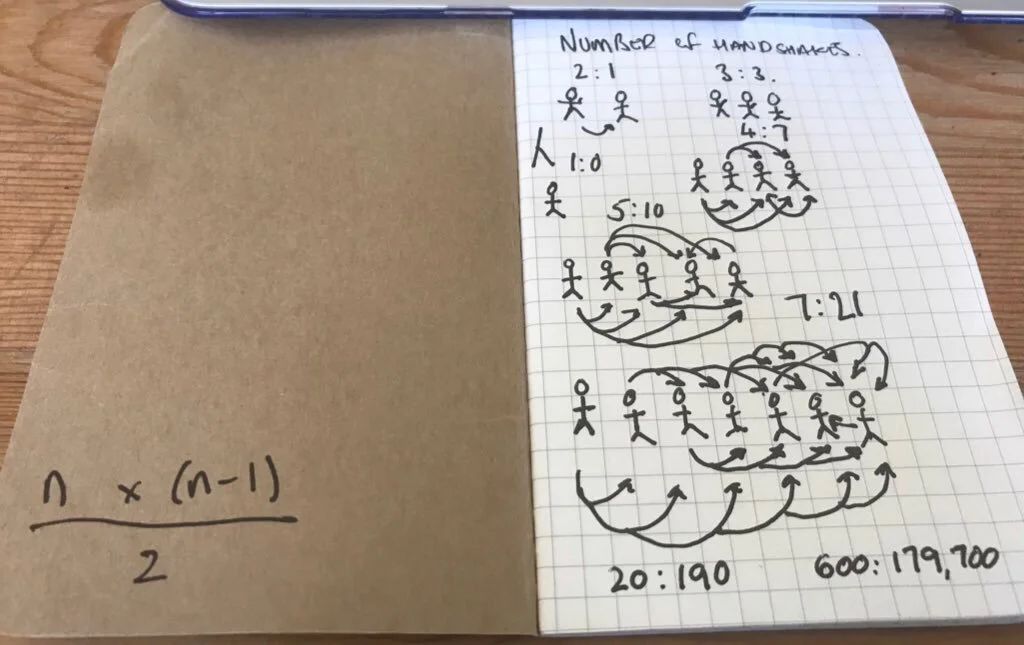 NUMBER of HANDSHAKES.
2:1 3:3.
4:7
1:0
5:10
7:21
20:190 600:179,700
n x (n-1)
2